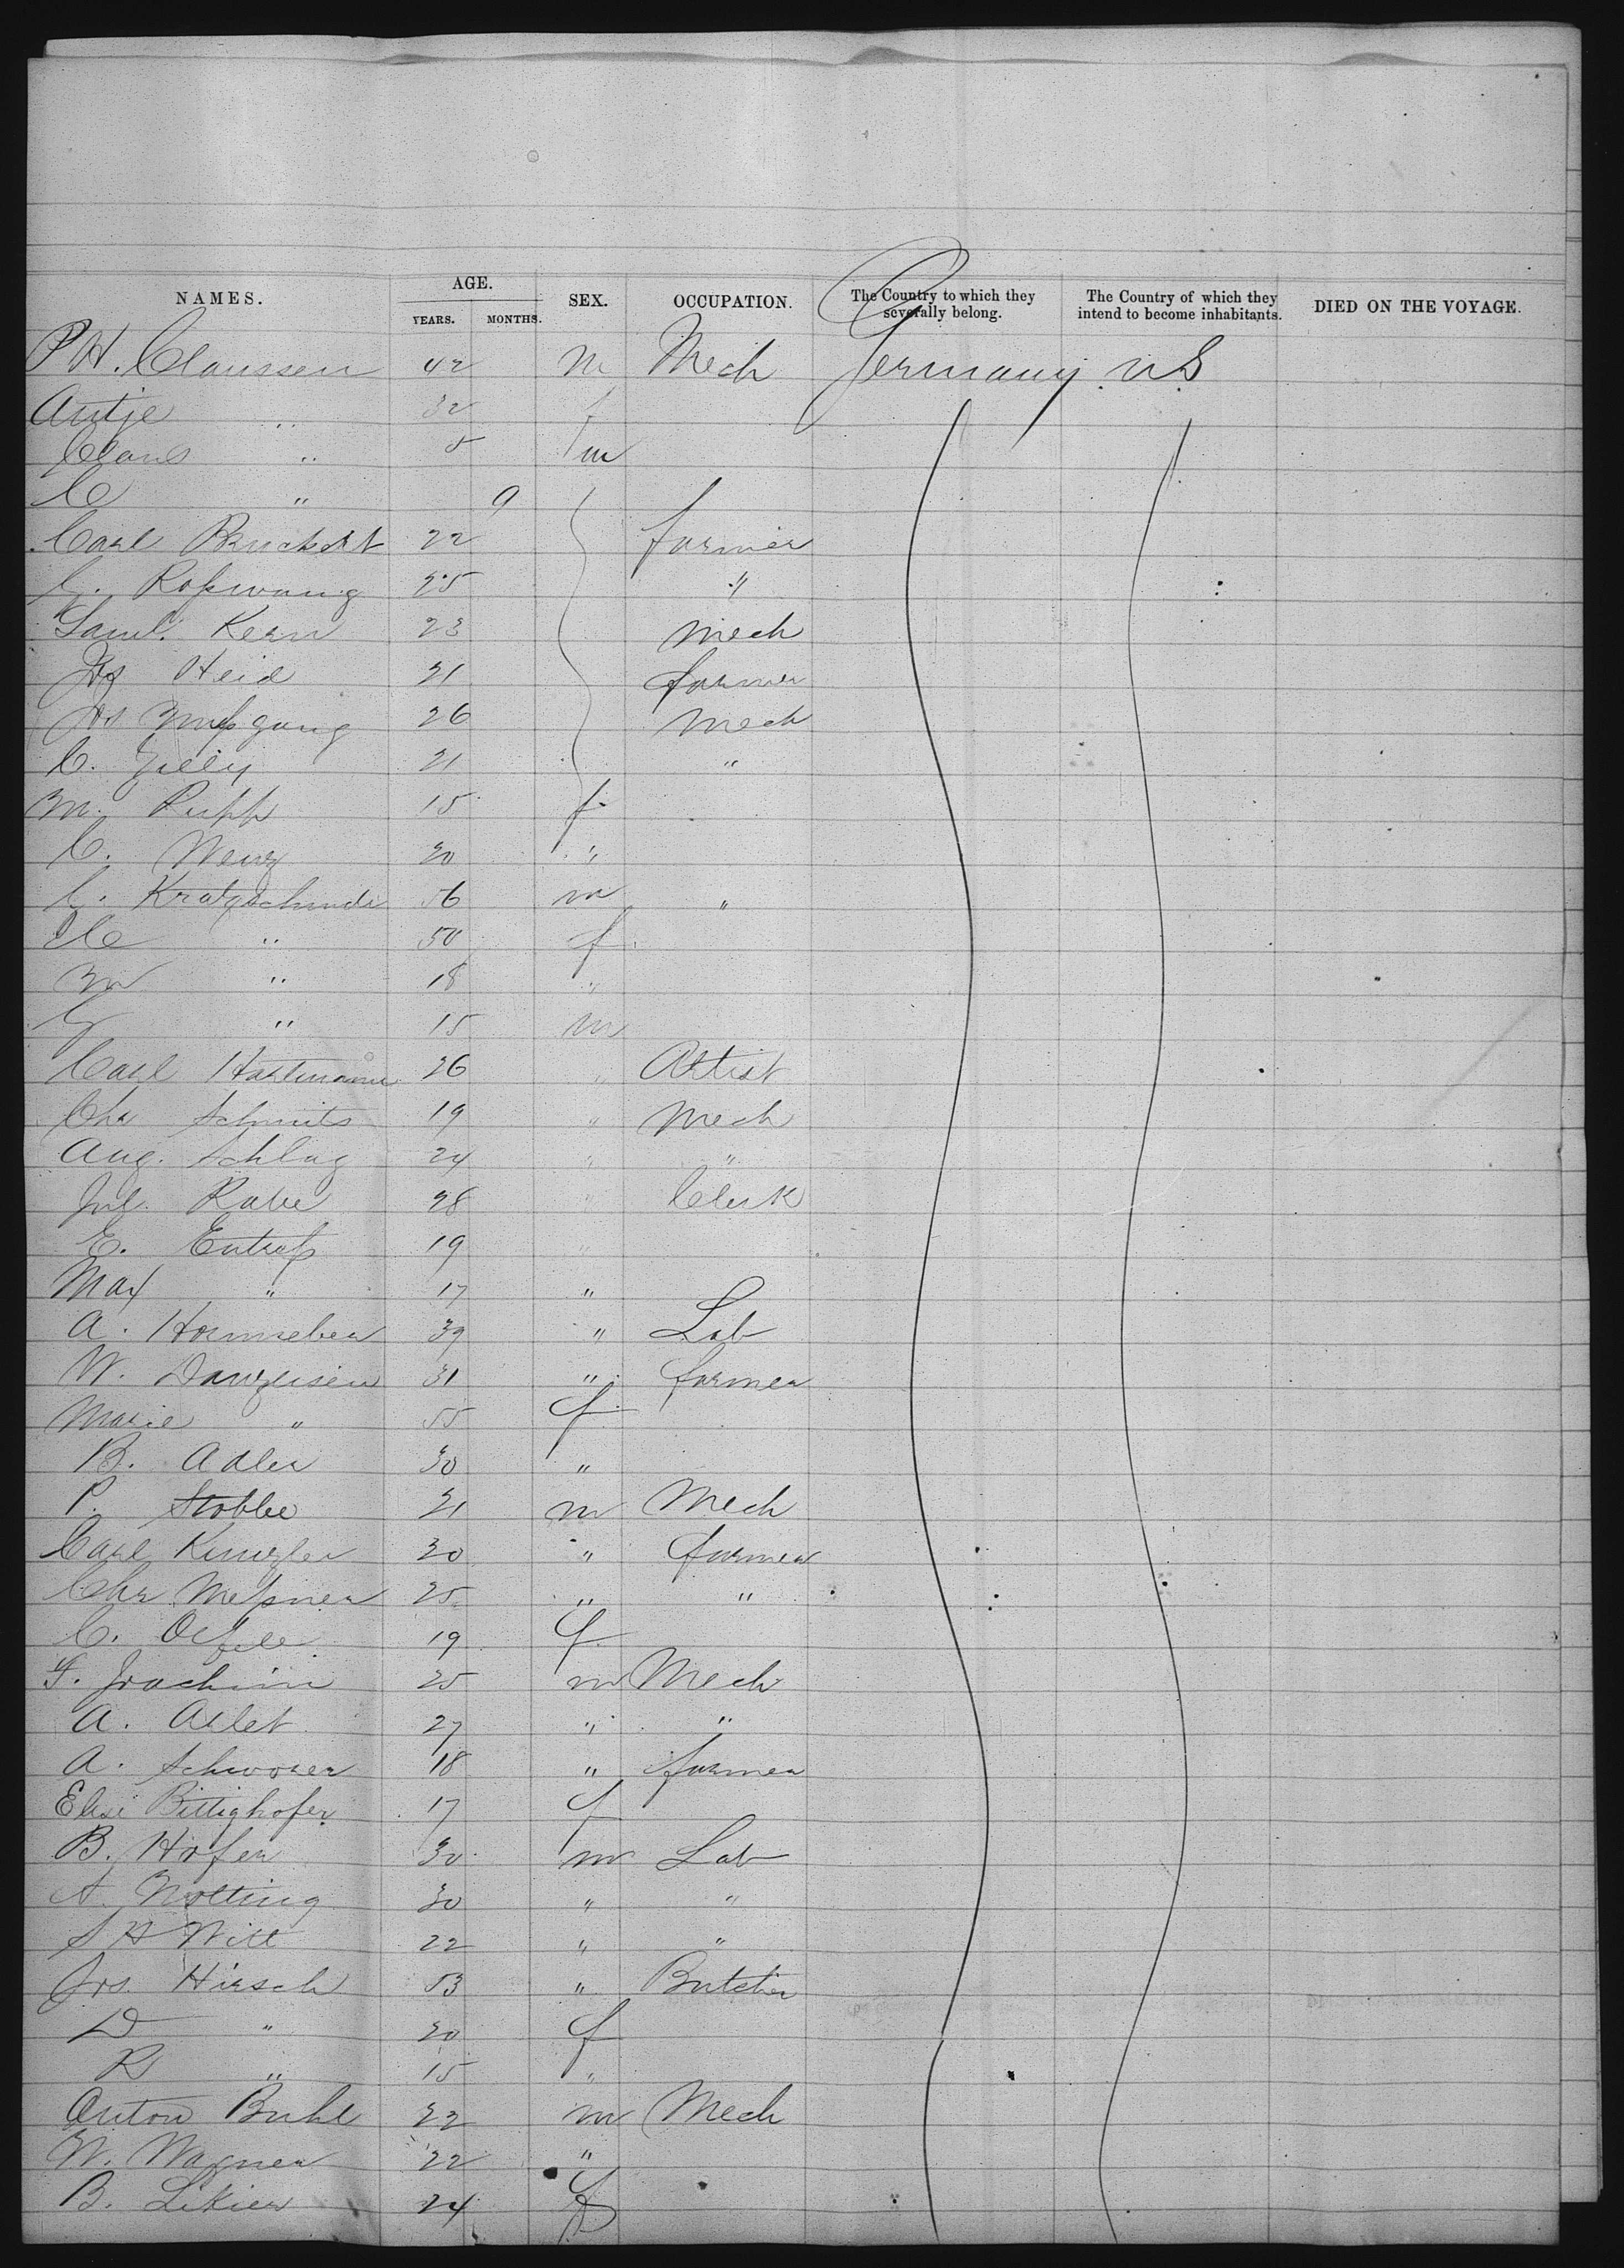 NAMES. AGE. SEX. OCCUPATION. The Country to which they severally belong. The Country of which they intend to become inhabitants. DIED ON THE VOYAGE.
YEARS. MONTHS.
P H. Claussen 42 m Mech Germany U.S
Antje " 32 f
Claus " 5 m
C " 9
Carl 22 farmer
C. Roßwang 25 "
Saml. Kern 23 mech
Jos Heid 21 farmer
Jos 26 mech
C. 21 "
M. Rupp 15 f
C. Wenz 20 "
C. 56 m "
" 50 f
M " 18 "
G " 15 m
Carl Hartmann 26 " Artist
Chr Schmits 19 " Mech
Aug. Schlag 24 " "
Jul. Rabe 28 " Clerk
E. 19 "
Max " 17 "
A. 39 " Lab
W. Danzeisen 31 " farmer
Marie " 55 f
B. Adler 30 "
P. Stobbe 21 m Mech
Carl Kunzler 20 " farmer
Chr Meßner 25 " "
C. 19 f
F. Joachim 25 m Mech
A. 27 " "
A. Schworer 18 " farmer
Elise Bittighofer 17 f
B. Hofer 30 m Lab
A. Nolting 30 " "
S H Witt 22 " "
Jos. Hirsch 53 " Butcher
D " 20 f
R " 15 "
Anton Buhl 22 m Mech
W. Wagner 22 "
B. 24 f